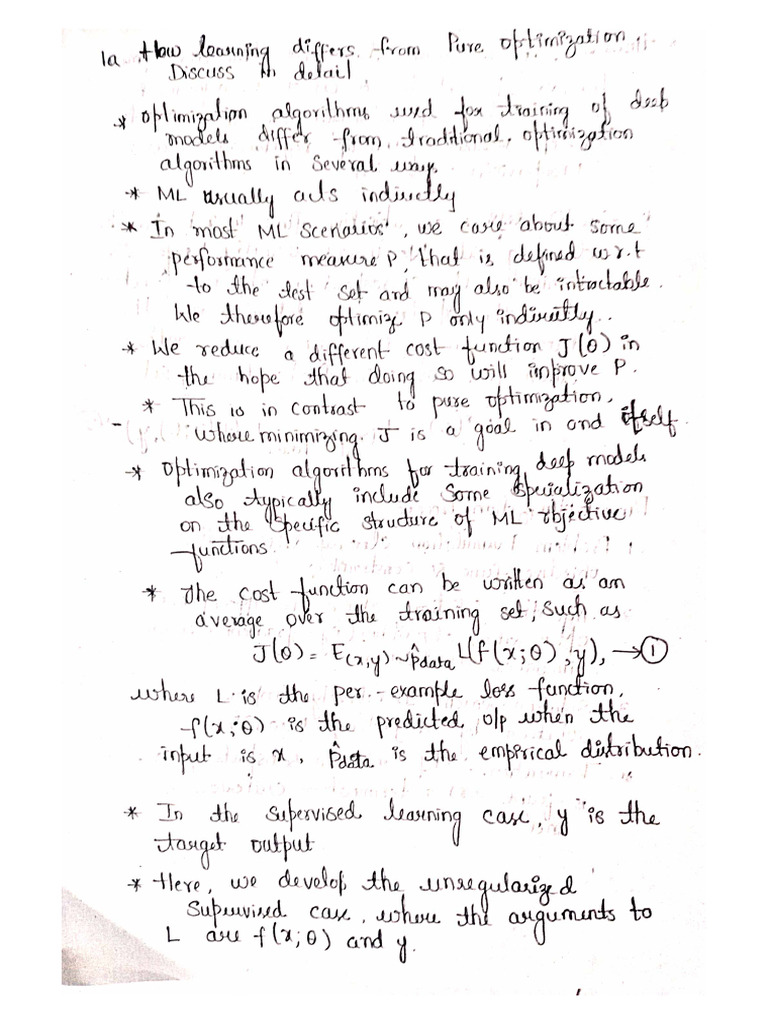 1a How learning differs from Pure optimization.
Discuss in detail
* Optimization algorithms used for training of deep
models differ from traditional, optimization
algorithms in several ways.
* ML usually acts indirectly
* In most ML scenarios, we care about some
performance measure P, that is defined w.r.t
to the test set and may also be intractable.
We therefore optimize P only indirectly..
* We reduce a different cost function J(θ) in
the hope that doing so will improve P.
* This is in contrast to pure optimization,
where minimizing J is a goal in and itself
* Optimization algorithms for training deep models
also typically include some specialization
on the specific structure of ML objective
functions
* The cost function can be written as an
average over the training set, such as
J(θ) = E(x,y)~p̂data L(f(x;θ), y), → ①
where L is the per-example loss function,
f(x;θ) is the predicted o/p when the
input is x, p̂data is the empirical distribution.
* In the supervised learning case, y is the
target output
* Here, we develop the unregularized
supervised case, where the arguments to
L are f(x;θ) and y.